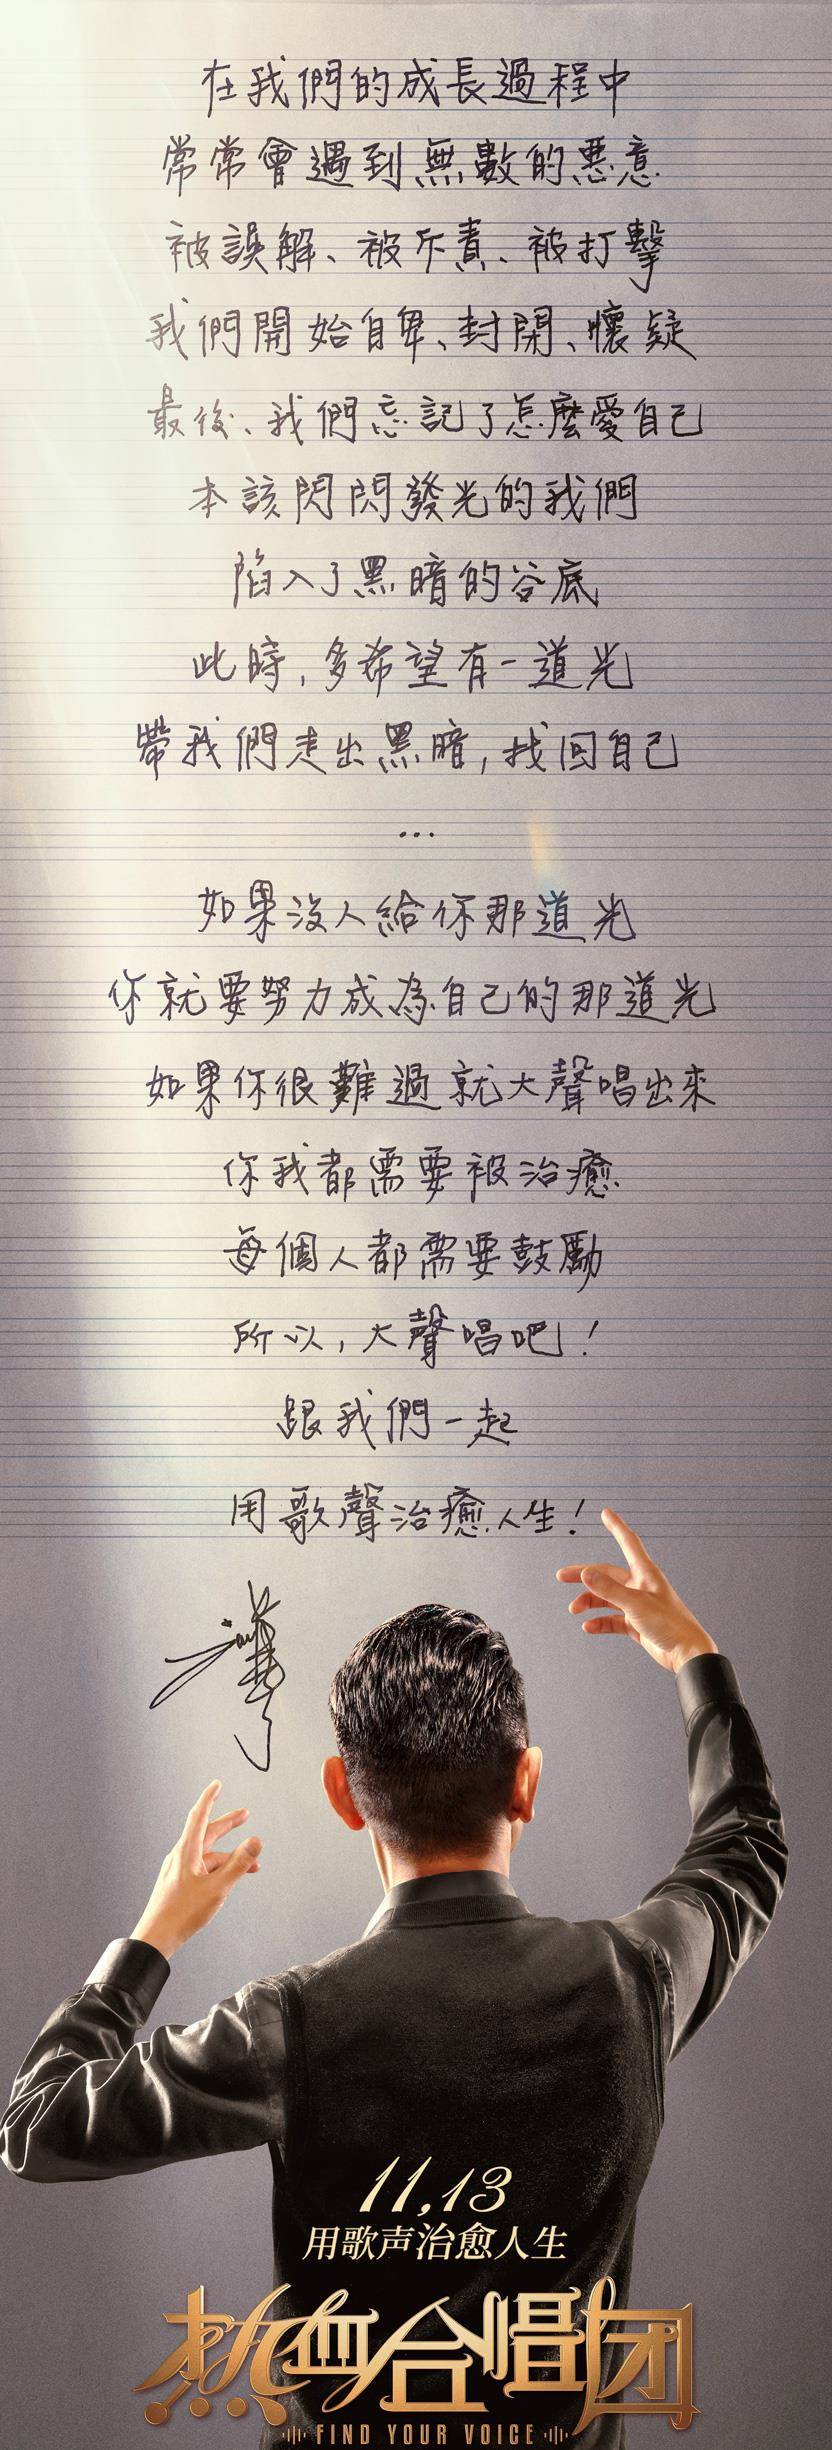 在我們的成長過程中
常常會遇到無數的惡意
被誤解、被斥責、被打擊
我們開始自卑、封閉、懷疑
最後、我們忘記了怎麼愛自己
本該閃閃發光的我們
陷入了黑暗的谷底
此時,多希望有一道光
帶我們走出黑暗,找回自己
...
如果沒人給你那道光
你就要努力成為自己的那道光
如果你很難過就大聲唱出來
你我都需要被治癒
每個人都需要鼓勵
所以,大聲唱吧!
跟我們一起
用歌聲治癒人生!
11.13
用歌声治愈人生
热血合唱团
FIND YOUR VOICE